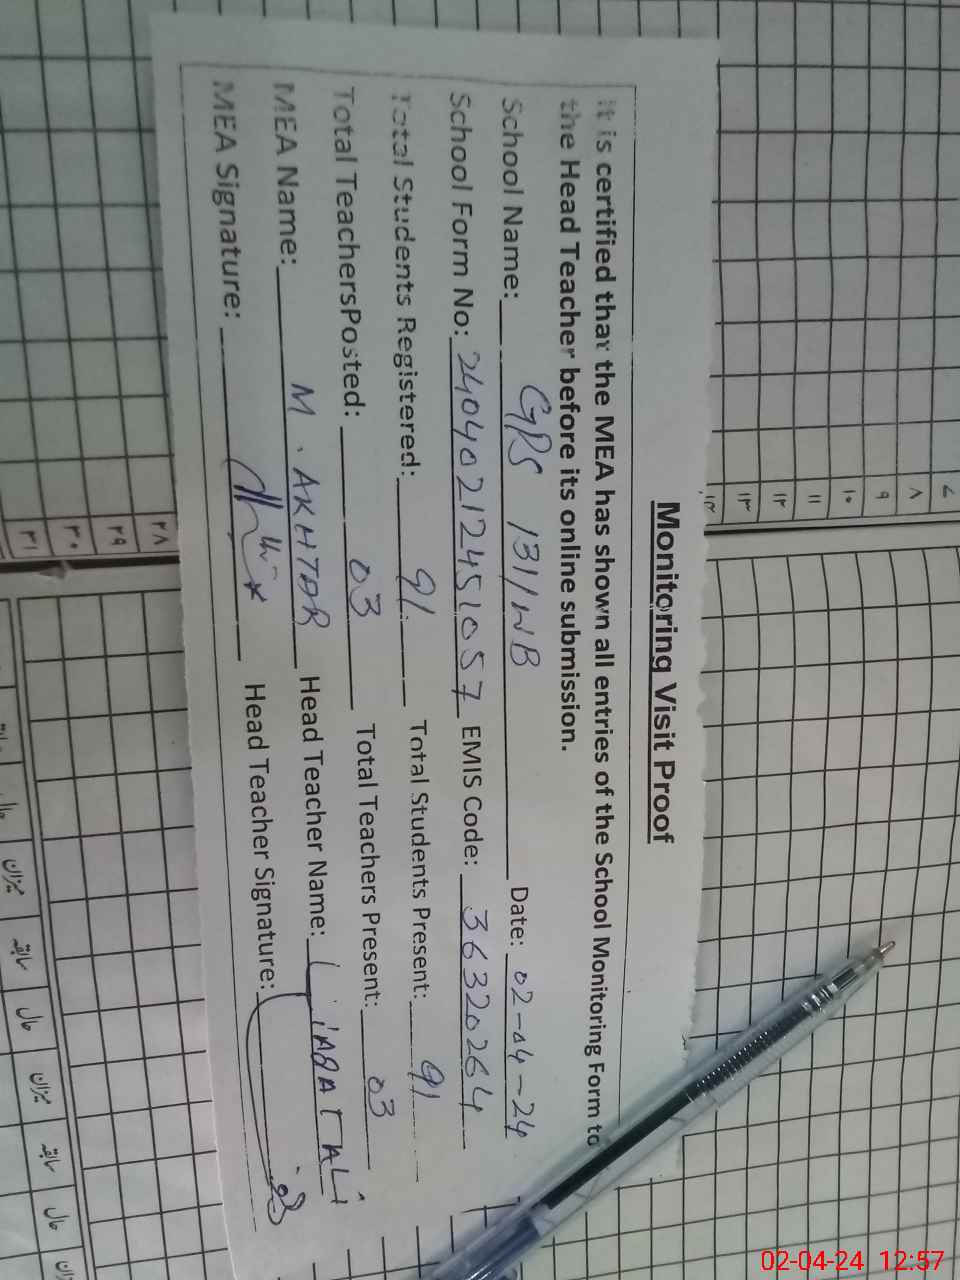 Monitoring Visit Proof
It is certified that the MEA has shown all entries of the School Monitoring Form to
the Head Teacher before its online submission.
School Name: GPS 131/WB Date: 02-04-24
School Form No: 24040212451057 EMIS Code: 36320264
Total Students Registered: 91 Total Students Present: 91
Total TeachersPosted: 03 Total Teachers Present: 03
MEA Name: M. AKHTAR Head Teacher Name: LiAQAT ALi
MEA Signature: Head Teacher Signature:
۷
۸
۹
۱۰
۱۱
۱۲
۱۳
۱۴
۲۸
۲۹
۳۰
۳۱
میزان
سابقہ
حال
میزان
سابقہ
حال
02-04-24 12:57